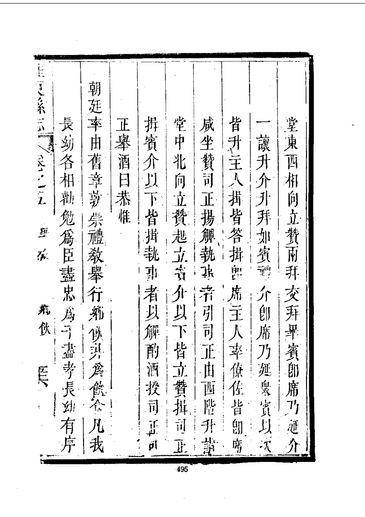 堂東西相向立贊兩拜交拜畢賓即席乃延介
一讓升介升拜如賓禮介即席乃延衆賓以次
皆升主人揖皆答揖即席主人率僚佐皆即席
咸坐贊司正揚觶執事者引司正由西階升詣
堂中北向立贊起立賓介以下皆立贊揖司正
揖賓介以下皆揖執事者以觶酌酒授司正司
正舉酒曰恭惟
朝廷率由舊章敦崇禮教舉行鄉飲非為飲食凡我
長幼各相勸勉為臣盡忠為子盡孝長幼有序
縣志
卷之五
鄉飲
495